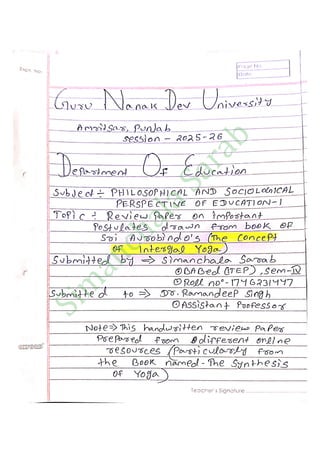 Page No.
Date
Guru Nanak Dev University
Amritsar, Punjab
session - 2025-26
Department Of Education
Subject ÷ PHILOSOPHICAL AND SOCIOLOGICAL
PERSPECTIVE OF EDUCATION-1
Topic ÷ Review Paper on Important
Postulates drawn from book OF
Sri Aurobindo's (The Concept
OF Intergal Yoga)
Submitted by ⇒ Simanchala Sarab
BABed (ITEP), Sem-IV
Roll no°- 1746231447
Submitted to ⇒ Dr. Ramandeep Singh
Assistant Professor
Note⇒ This handwritten review paper
Prepared from different online
resources (Particularly from
the Book named-The Synthesis
OF Yoga)
Teacher's Signature
Simanchala Sarab